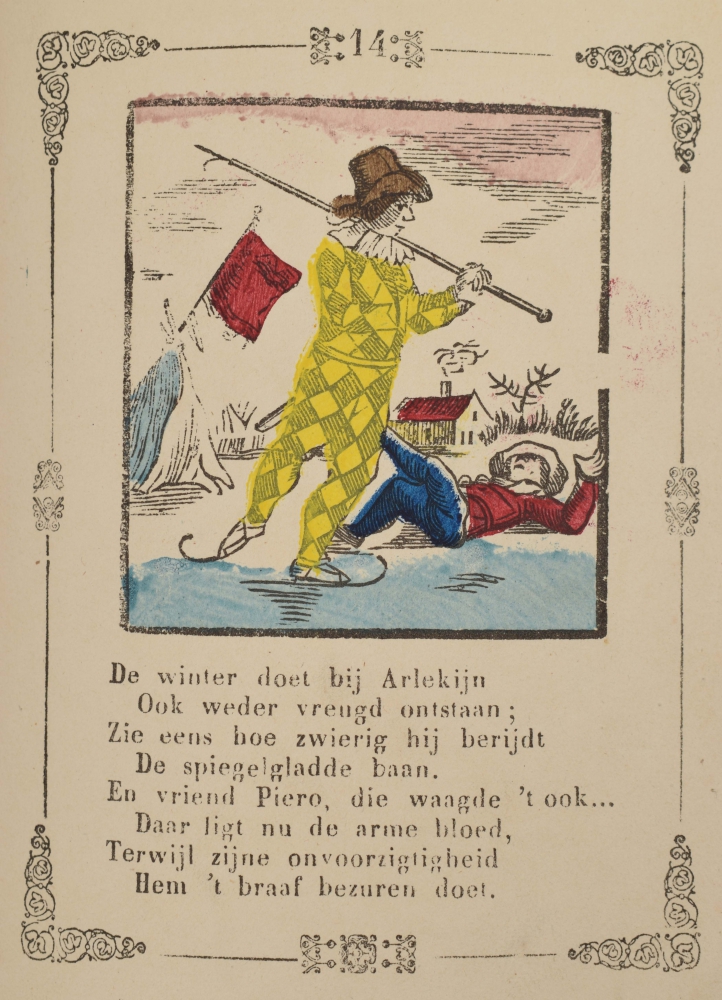 14
De winter doet bij Arlekijn
Ook weder vreugd ontstaan;
Zie eens hoe zwierig hij berijdt
De spiegelgladde baan.
En vriend Piero, die waagde 't ook...
Daar ligt nu de arme bloed,
Terwijl zijne onvoorzigtigheid
Hem 't braaf bezuren doet.